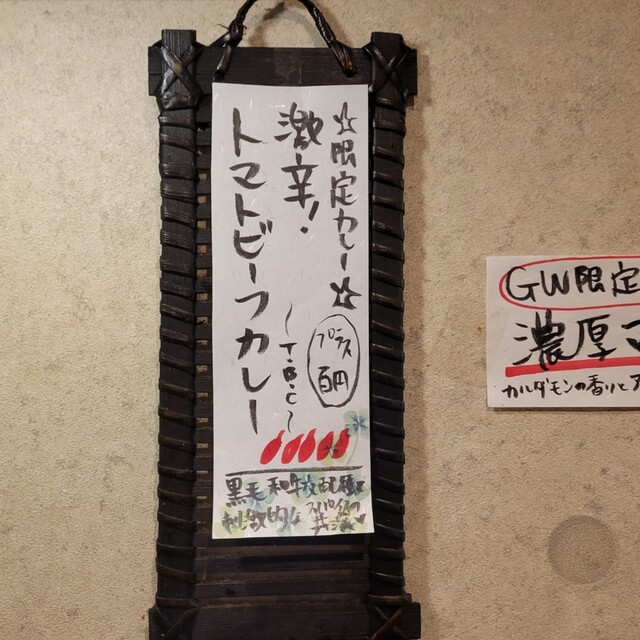 ☆限定カレー☆
激辛！
トマトビーフカレー
〜T・B・C〜
プラス
百円
黒毛和牛
刺激的な
GW限定
濃厚
カルダモンの香りと